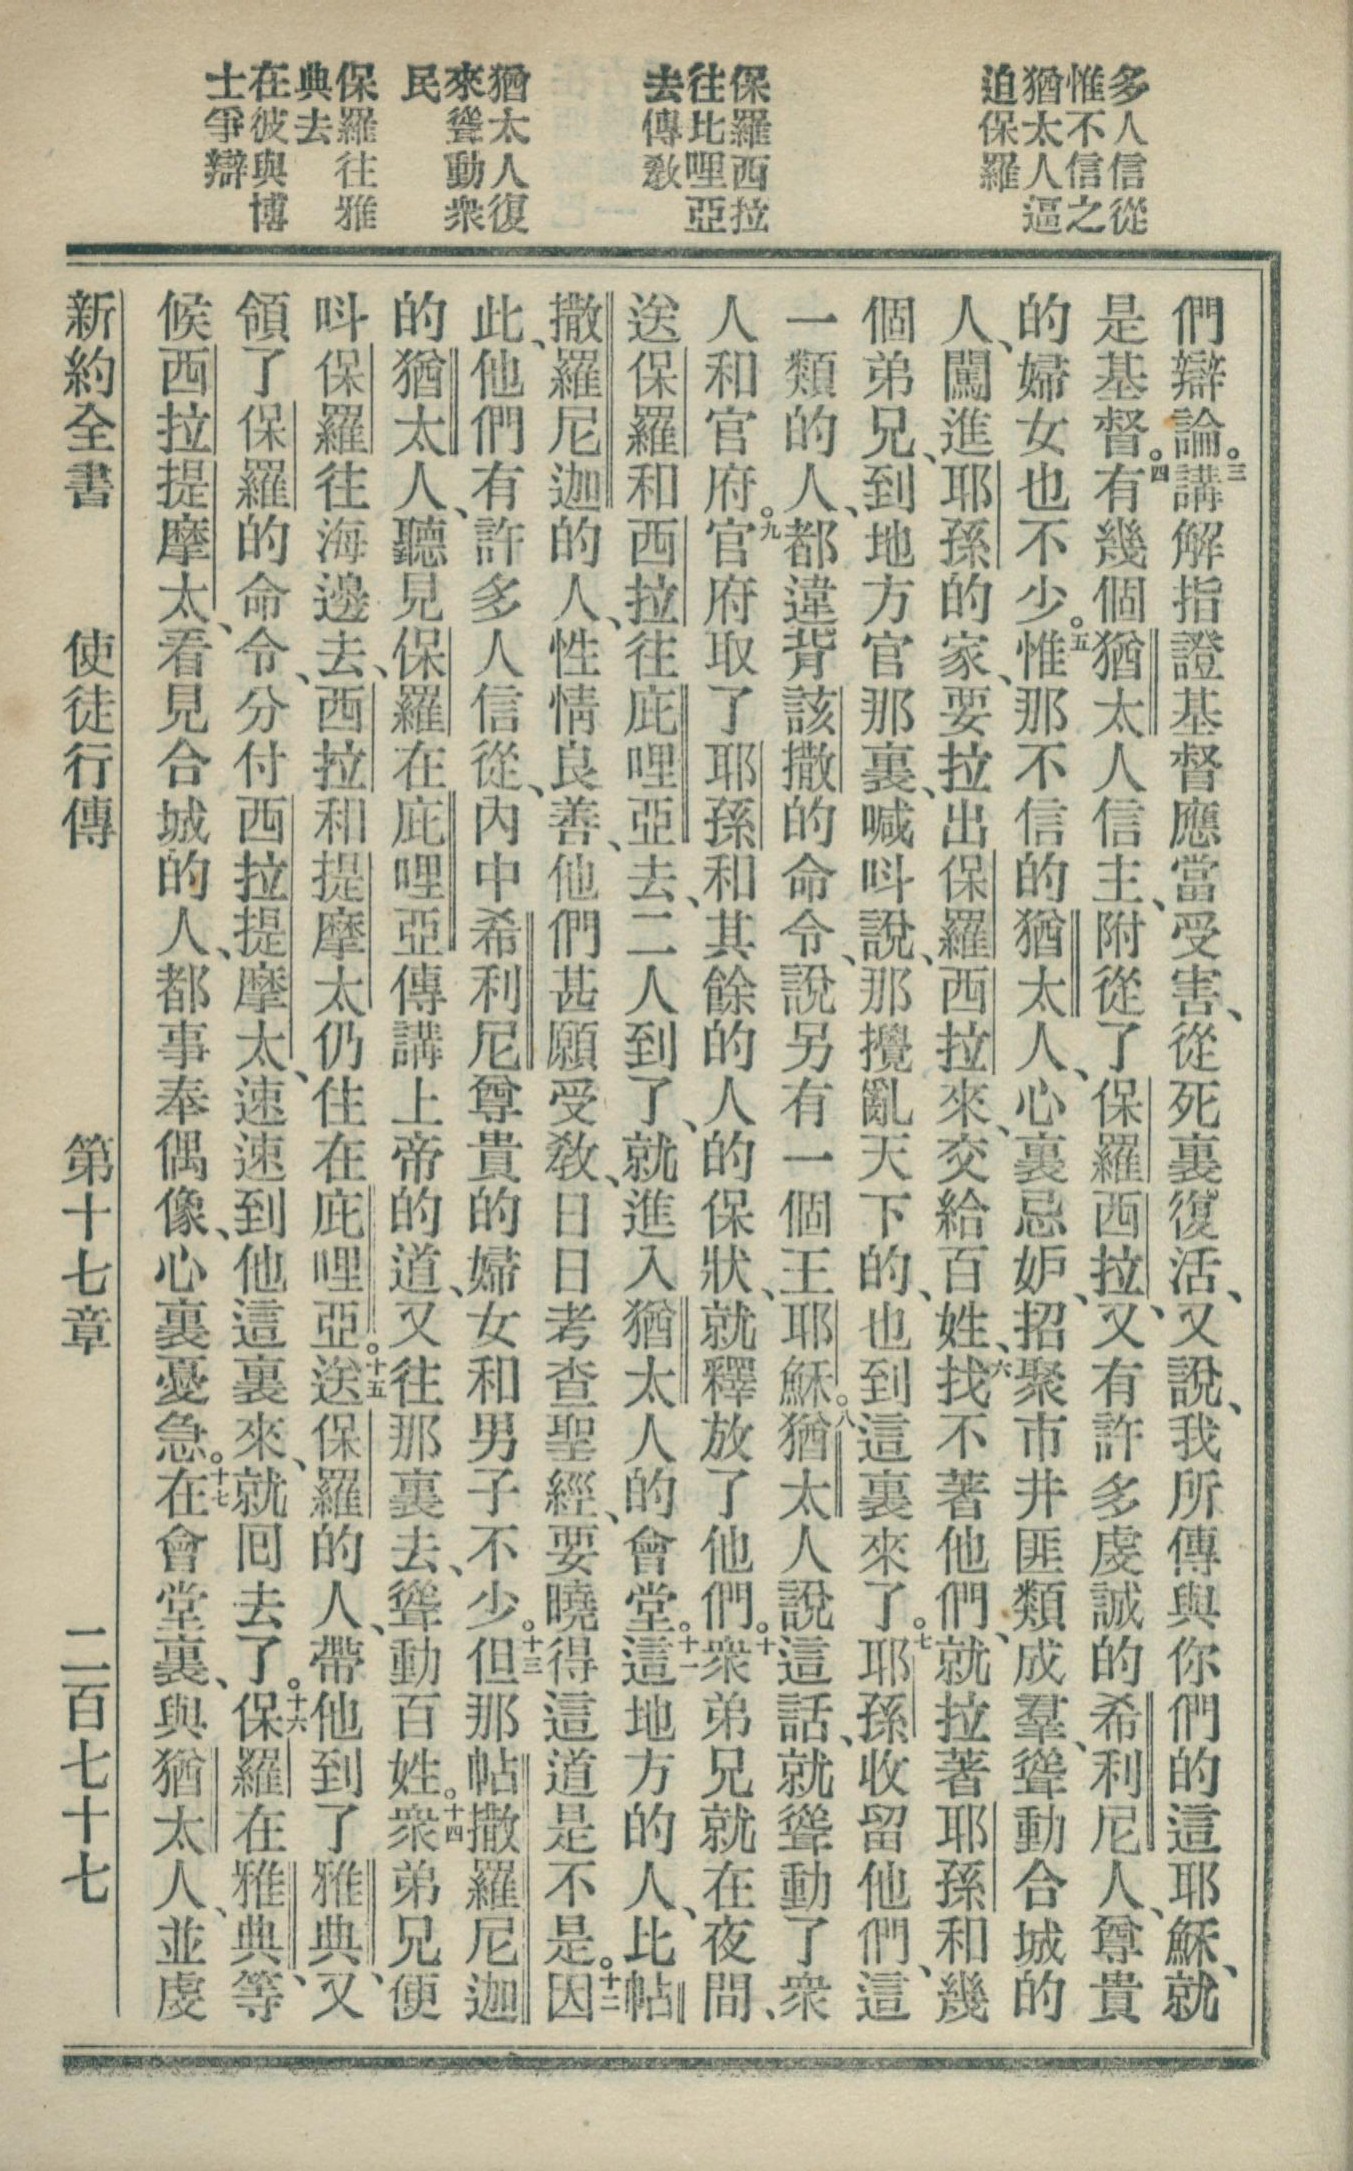 多人信從
惟不信之
猶太人逼
迫保羅
保羅西拉
往比哩亞
去傳敎
猶太人復
來聳動衆
民
保羅往雅
典去
在彼與博
士爭辯
們辯論。三講解指證基督應當受害、從死裏復活、又說、我所傳與你們的這耶穌、就
是基督。四有幾個猶太人信主、附從了保羅西拉、又有許多虔誠的希利尼人、尊貴
的婦女也不少。五惟那不信的猶太人、心裏忌妒、招聚市井匪類成羣、聳動合城的
人、闖進耶孫的家、要拉出保羅西拉來、交給百姓、六找不著他們、就拉著耶孫和幾
個弟兄、到地方官那裏、喊呌說、那攪亂天下的、也到這裏來了。七耶孫收留他們、這
一類的人、都違背該撒的命令、說另有一個王耶穌。八猶太人說這話、就聳動了衆
人和官府。九官府取了耶孫和其餘的人的保狀、就釋放了他們。十衆弟兄就在夜間、
送保羅和西拉往庇哩亞去、二人到了、就進入猶太人的會堂。十一這地方的人、比帖
撒羅尼迦的人、性情良善、他們甚願受敎、日日考查聖經、要曉得這道是不是。十二因
此、他們有許多人信從、內中希利尼尊貴的婦女和男子不少。十三但那帖撒羅尼迦
的猶太人、聽見保羅在庇哩亞傳講上帝的道、又往那裏去、聳動百姓。十四衆弟兄便
呌保羅往海邊去、西拉和提摩太仍住在庇哩亞。十五送保羅的人、帶他到了雅典、又
領了保羅的命令、分付西拉提摩太、速速到他這裏來、就囘去了。十六保羅在雅典、等
候西拉提摩太、看見合城的人、都事奉偶像、心裏憂急。十七在會堂裏、與猶太人、並虔
新約全書 使徒行傳 第十七章 二百七十七